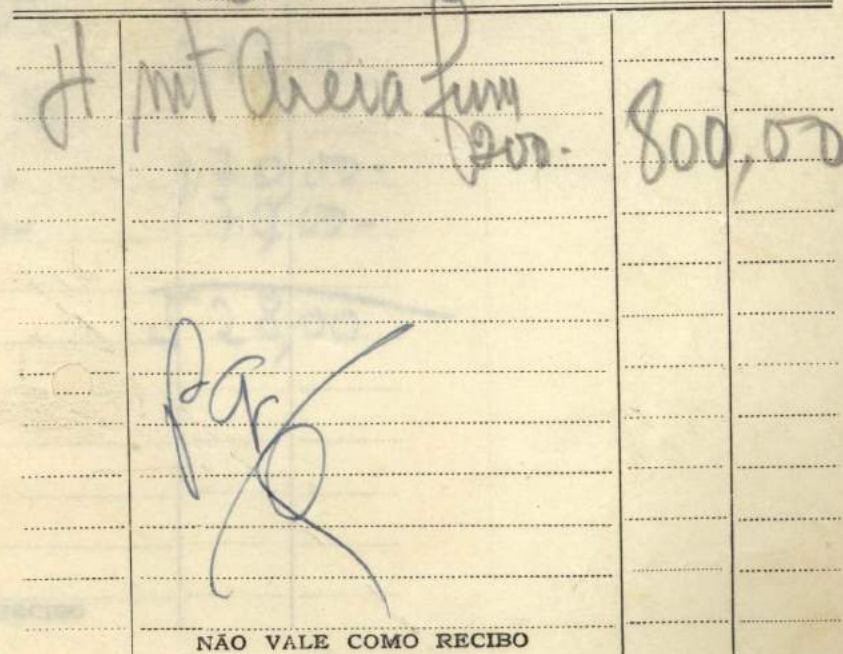 4 mt Areia fina 800,00
200.
pg
NÃO VALE COMO RECIBO